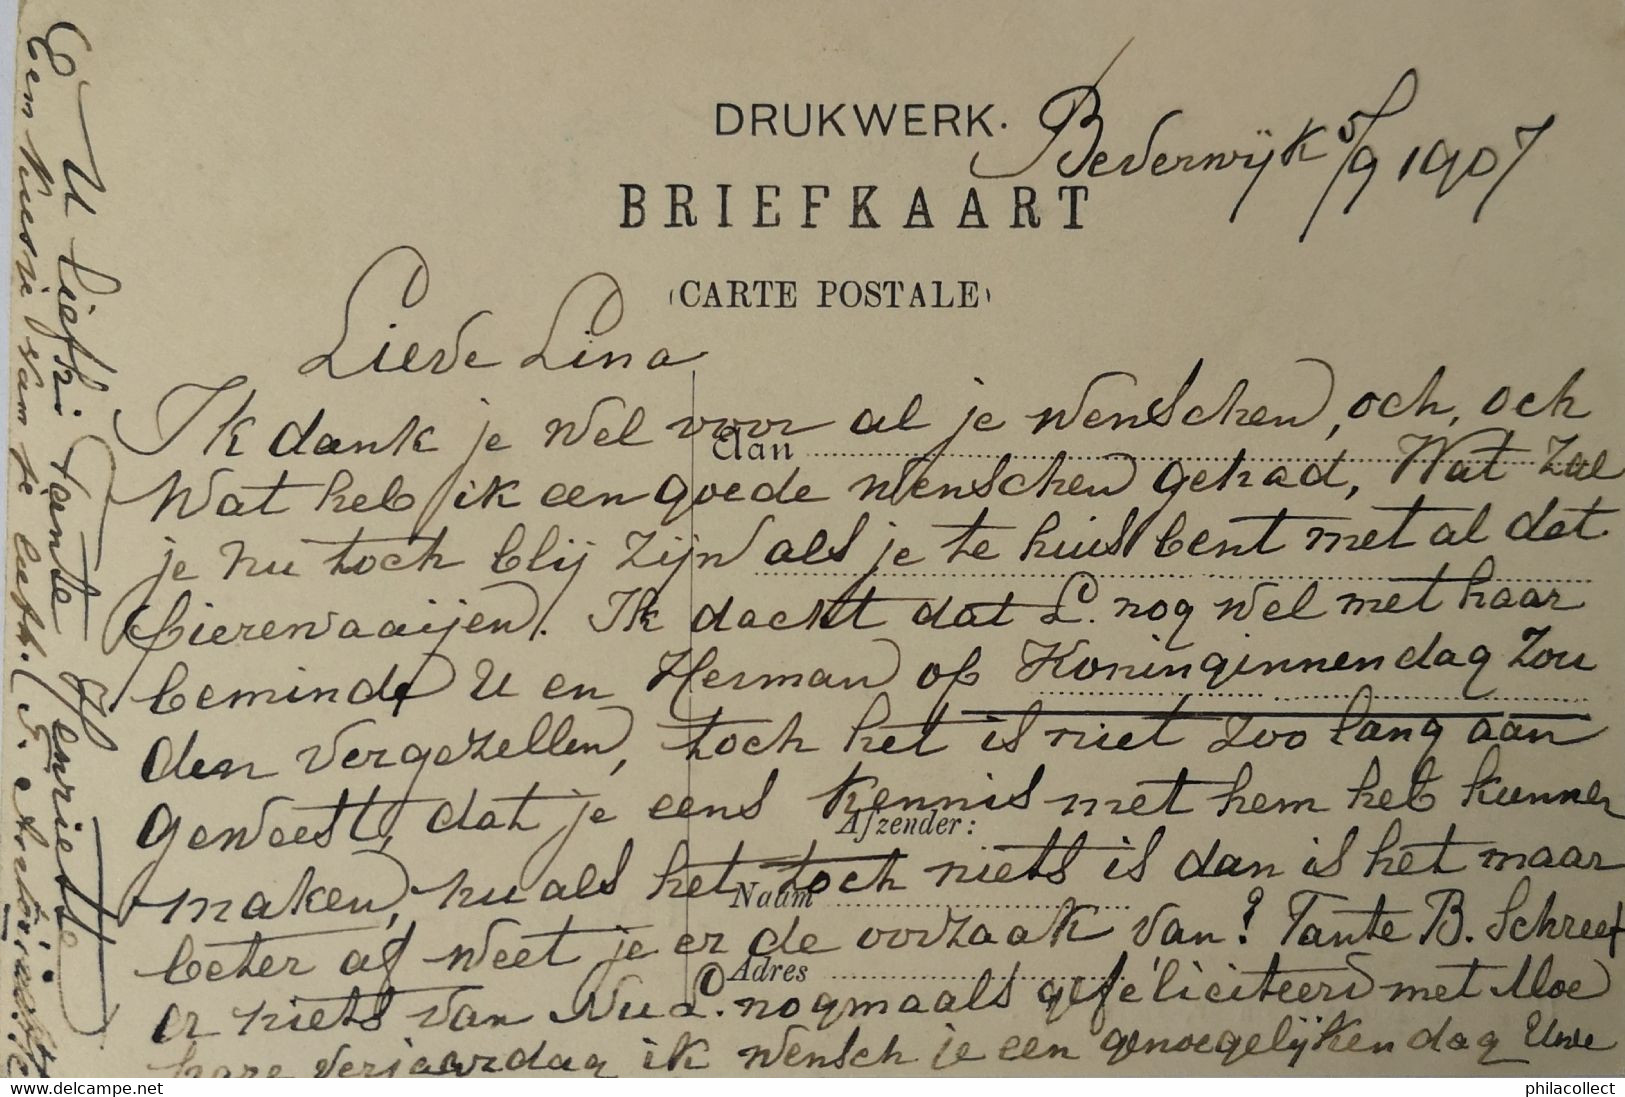 DRUKWERK.
Beverwijk 5/9 1907
BRIEFKAART
(CARTE POSTALE)
Lieve Lina
Ik dank je wel voor al je wenschen, och, och
Aan
Wat heb ik een goede menschen gehad, Wat Zul
je nu toch blij zijn als je te huis bent met al dat
bierewaaijen. Ik dacht dat L. nog wel met haar
beminde U en Herman op Koninginnendag Zou
den vergezellen, toch het is niet zoo lang aan
geweest, dat je eens kennis met hem heb kunnen
Afzender:
maken, nu als het toch niets is dan is het maar
Naam
beter af weet je er de oorzaak van? Tante B. Schreef
Adres
er niets van Nu L. nogmaals gefeliciteerd met Moe
hare verjaardag ik wensch je een genoegelijken dag Uwe
U liefh. Tante Henriette
Een kusje van je liefh.
philacollect